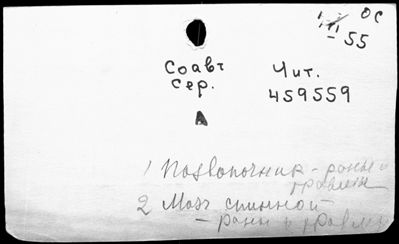 ОС
III 55
Соавт Чит.
сер. 459559
А
1 Позвоночник - раны и
травмы
2 Мозг спинной -
- раны и травмы